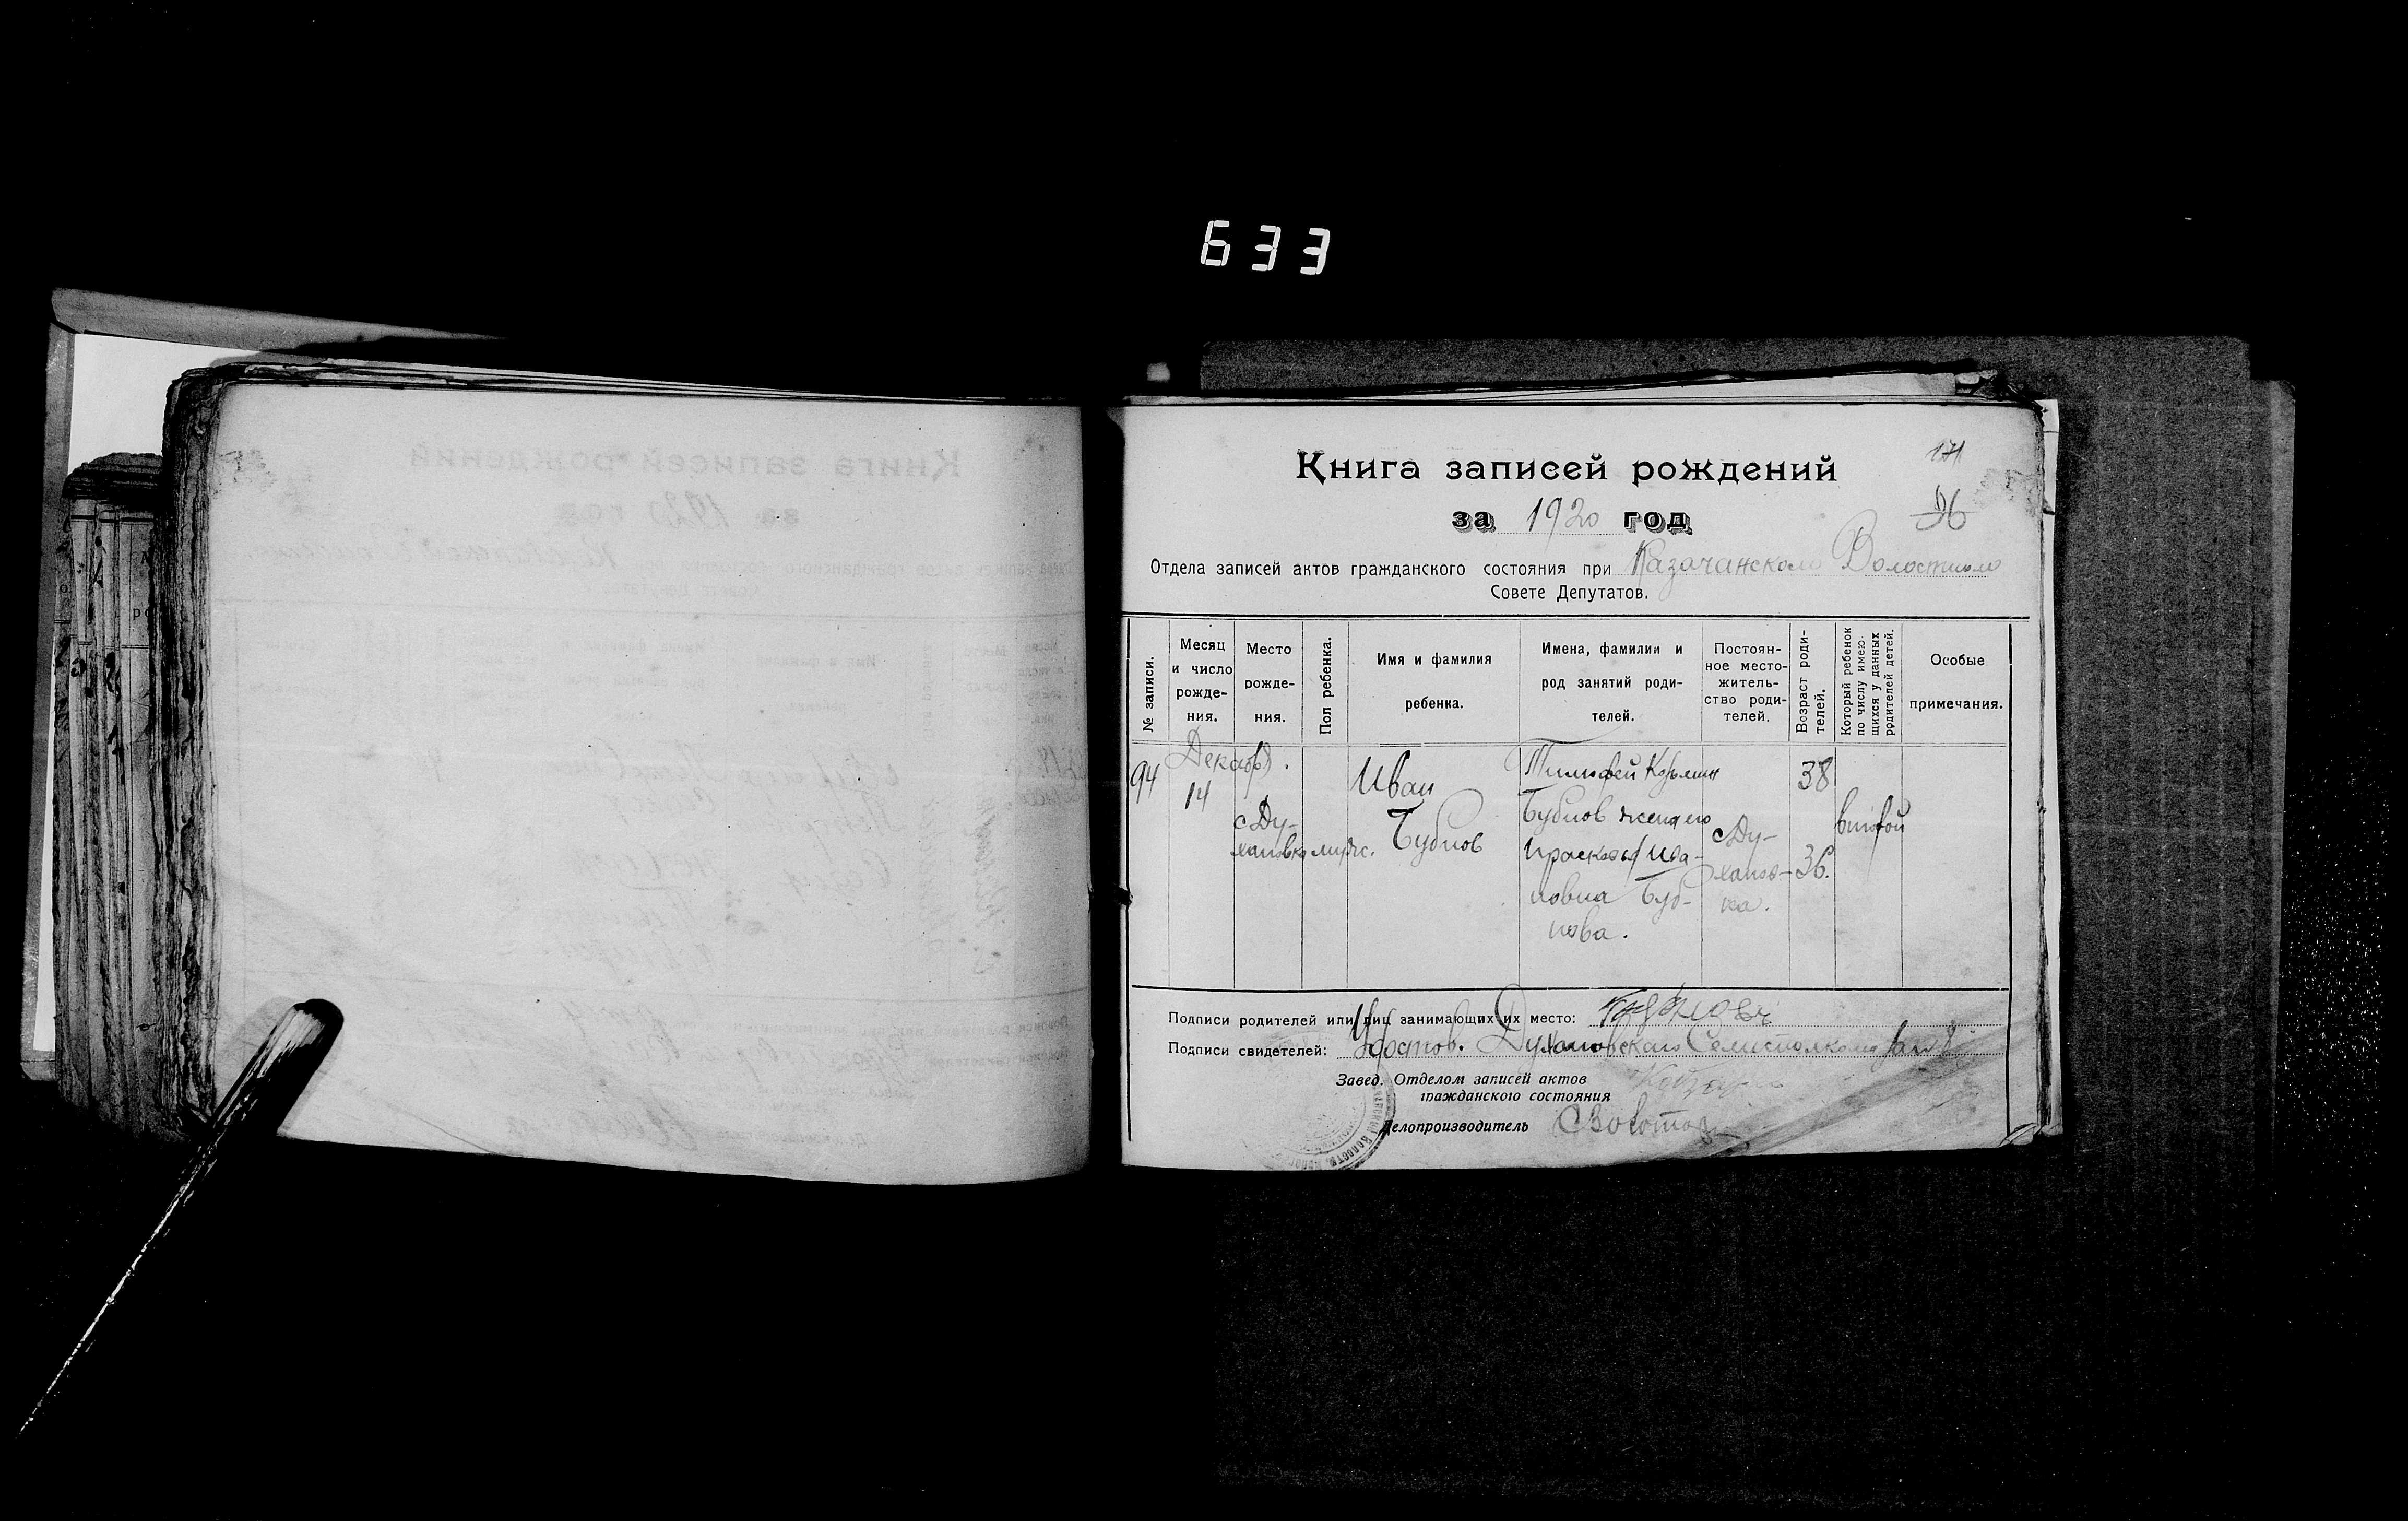 633
171
96
Книга записей рождений
за 1920 год
Отдела записей актов гражданского состояния при Казачанском Волостном
Совете Депутатов.
№ записи.
Месяц и число рожде- ния.
Место рожде- ния.
Пол ребенка.
Имя и фамилия ребенка.
Имена, фамилии и род занятий роди- телей.
Постоян- ное место- житель- ство роди- телей.
Возраст роди- телей.
Который ребенок по числу имею- щихся у данных родителей детей.
Особые примечания.
94
Декабря.
14
с Ду-
хановка
мужс.
Иван
Бубнов
Тимофей Козьмин
Бубнов жена его
Прасковья Ива-
новна Буб-
нова.
с Ду-
ханов-
ка.
38
36.
второй
Подписи родителей или лиц занимающих их место:
Подписи свидетелей: Удостов. Духановского
Завед. Отделом записей актов
гражданского состояния
Делопроизводитель